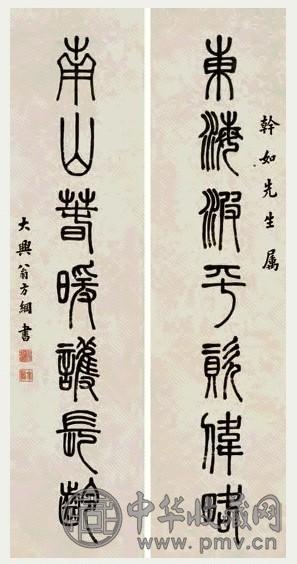 幹如先生属
東海波平欽偉略
南山春暖護長齡
大興翁方綱書
中华收藏网
www.pmv.cn